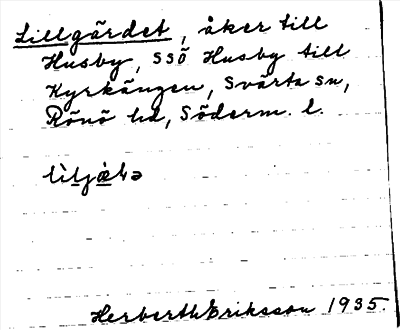 Lillgärdet, åker till
Husby, SSÖ Husby till
Kyrkängen, Svärta sn,
Rönö hd, Söderm. l.
Herberth Eriksson 1935.